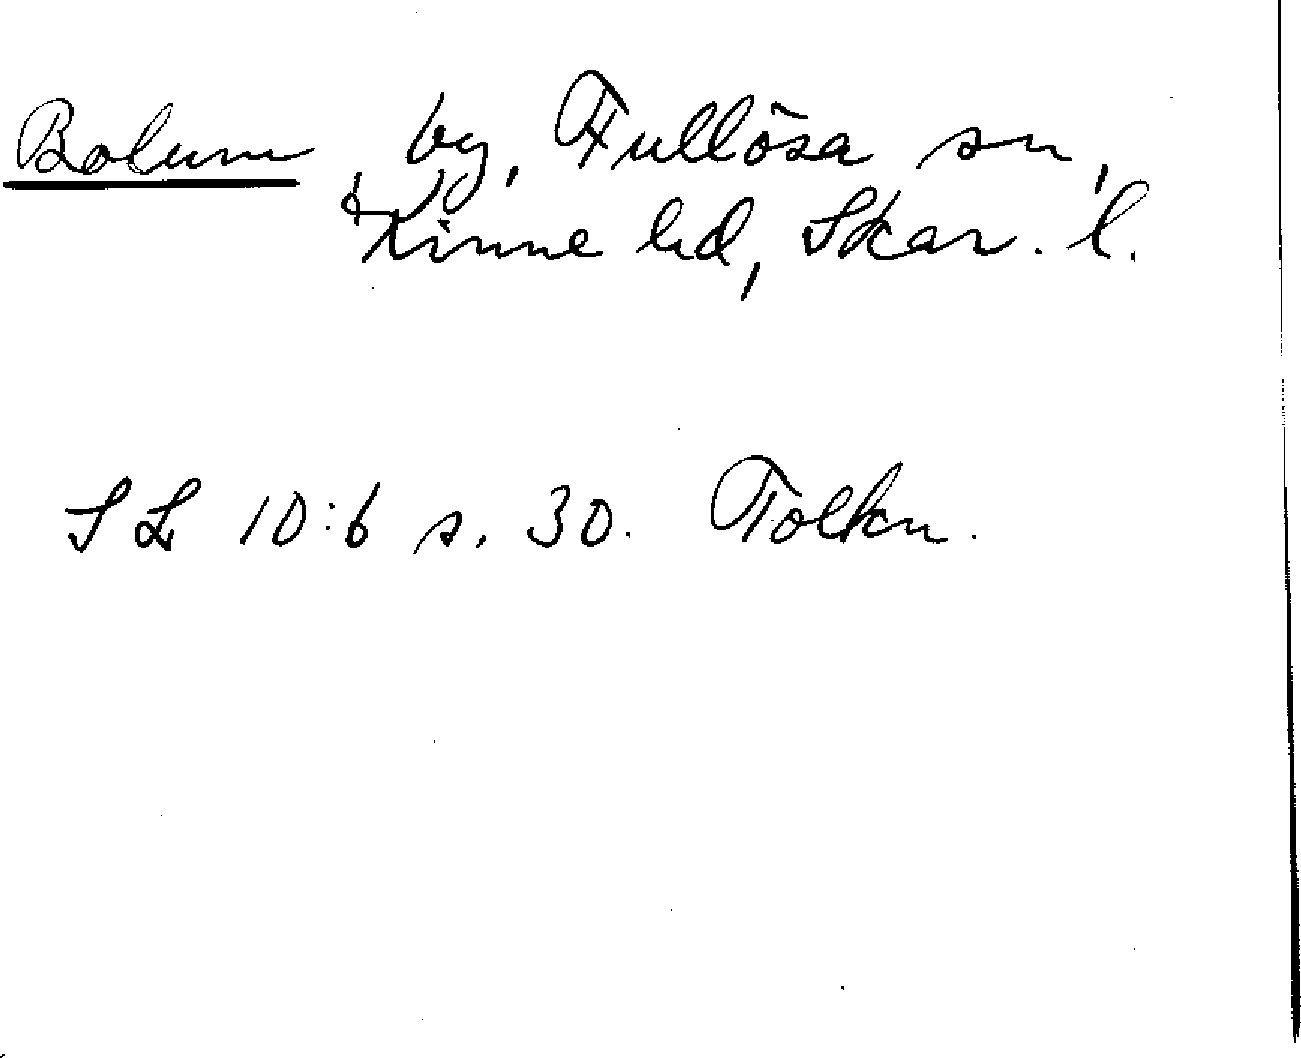 Bolum by, Fullösa sn,
Kinne hd, Skar. l.
SL 10:6 s. 30. Tolkn.